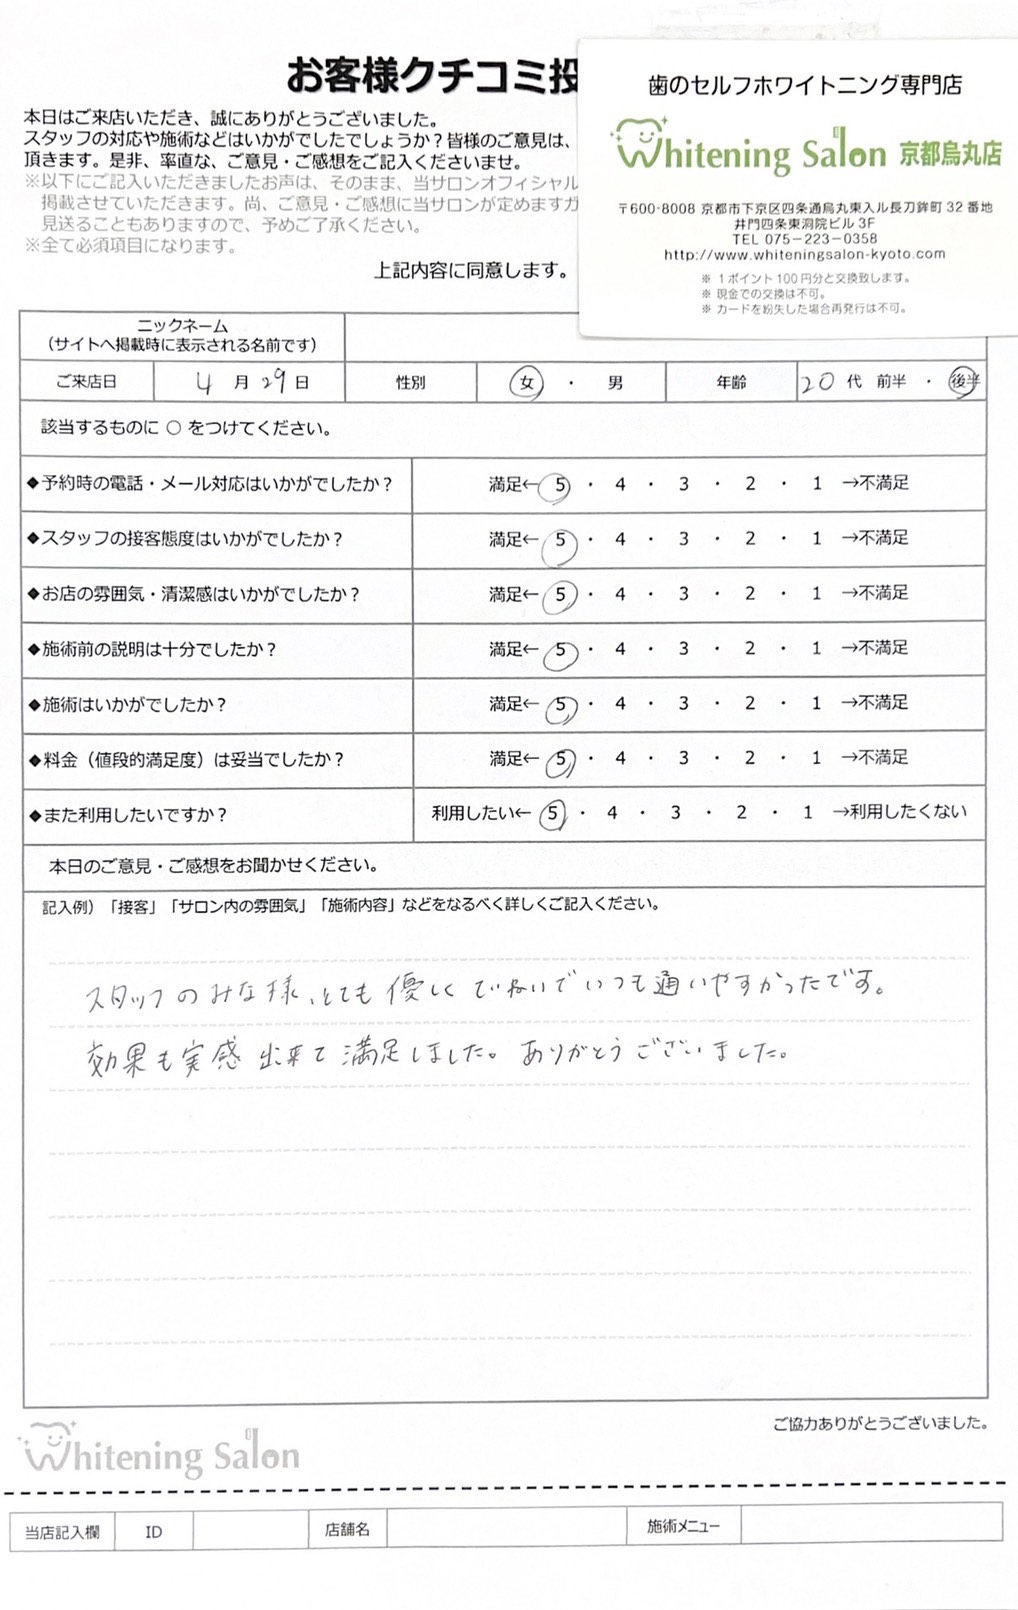 お客様クチコミ投
本日はご来店いただき、誠にありがとうございました。
スタッフの対応や施術などはいかがでしたでしょうか?皆様のご意見は、
頂きます。是非、率直な、ご意見・ご感想をご記入くださいませ。
※以下にご記入いただきましたお声は、そのまま、当サロンオフィシャル
掲載させていただきます。尚、ご意見・ご感想に当サロンが定めますガ
見送ることもありますので、予めご了承ください。
※全て必須項目になります。
上記内容に同意します。
歯のセルフホワイトニング専門店
Whitening Salon 京都烏丸店
〒600-8008 京都市下京区四条通烏丸東入ル長刀鉾町 32 番地
井門四条東洞院ビル 3F
TEL 075-223-0358
http://www.whiteningsalon-kyoto.com
※ 1ポイント100円分と交換致します。
※ 現金での交換は不可。
※ カードを紛失した場合再発行は不可。
ニックネーム
(サイトへ掲載時に表示される名前です)
ご来店日 4 月 29 日 性別 女 ・ 男 年齢 20 代 前半 ・ 後半
該当するものに ○ をつけてください。
◆予約時の電話・メール対応はいかがでしたか? 満足← 5 ・ 4 ・ 3 ・ 2 ・ 1 →不満足
◆スタッフの接客態度はいかがでしたか? 満足← 5 ・ 4 ・ 3 ・ 2 ・ 1 →不満足
◆お店の雰囲気・清潔感はいかがでしたか? 満足← 5 ・ 4 ・ 3 ・ 2 ・ 1 →不満足
◆施術前の説明は十分でしたか? 満足← 5 ・ 4 ・ 3 ・ 2 ・ 1 →不満足
◆施術はいかがでしたか? 満足← 5 ・ 4 ・ 3 ・ 2 ・ 1 →不満足
◆料金(値段的満足度)は妥当でしたか? 満足← 5 ・ 4 ・ 3 ・ 2 ・ 1 →不満足
◆また利用したいですか? 利用したい← 5 ・ 4 ・ 3 ・ 2 ・ 1 →利用したくない
本日のご意見・ご感想をお聞かせください。
記入例)「接客」「サロン内の雰囲気」「施術内容」などをなるべく詳しくご記入ください。
スタッフのみな様、とても優しくていねいでいつも通いやすかったです。
効果も実感出来て満足しました。ありがとうございました。
ご協力ありがとうございました。
Whitening Salon
当店記入欄 ID 店舗名 施術メニュー